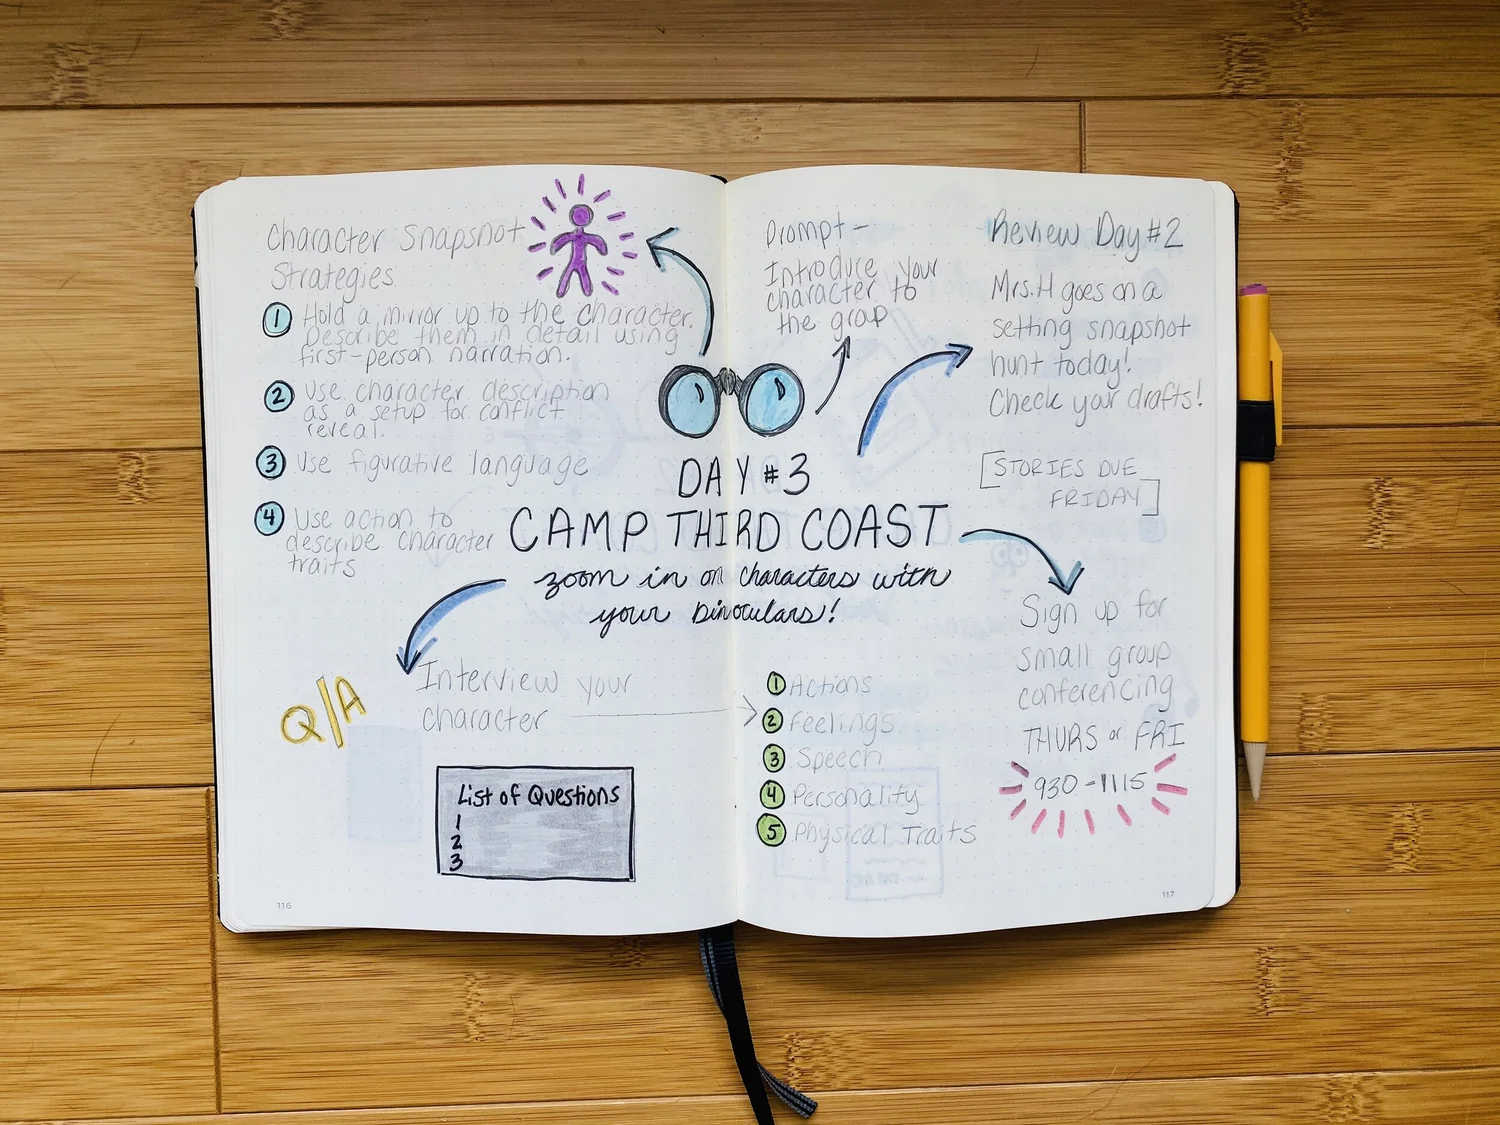 Character Snapshot
Strategies
1 Hold a mirror up to the character.
Describe them in detail using
first-person narration.
2 Use character description
as a setup for conflict
reveal.
3 Use figurative language
4 Use action to
describe character
traits
Prompt-
Introduce your
character to
the group
Review Day #2
Mrs. H goes on a
setting snapshot
hunt today!
Check your drafts!
[STORIES DUE
FRIDAY]
DAY #3
CAMP THIRD COAST
zoom in on characters with
your binoculars!
Q/A
Interview your
character
List of Questions
1
2
3
1 Actions
2 Feelings
3 Speech
4 Personality
5 Physical Traits
Sign up for
small group
conferencing
THURS or FRI
930-1115
116
117